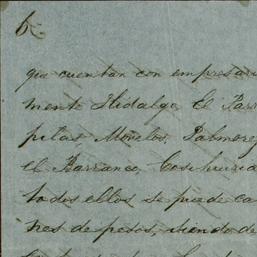 6
que cuentan con empresari
mente Hidalgo, El Par
pilas Morelos, Palmarej
el Barranco, Cosihuiria
todos ellos se puede ca
nes de pesos, siendo de